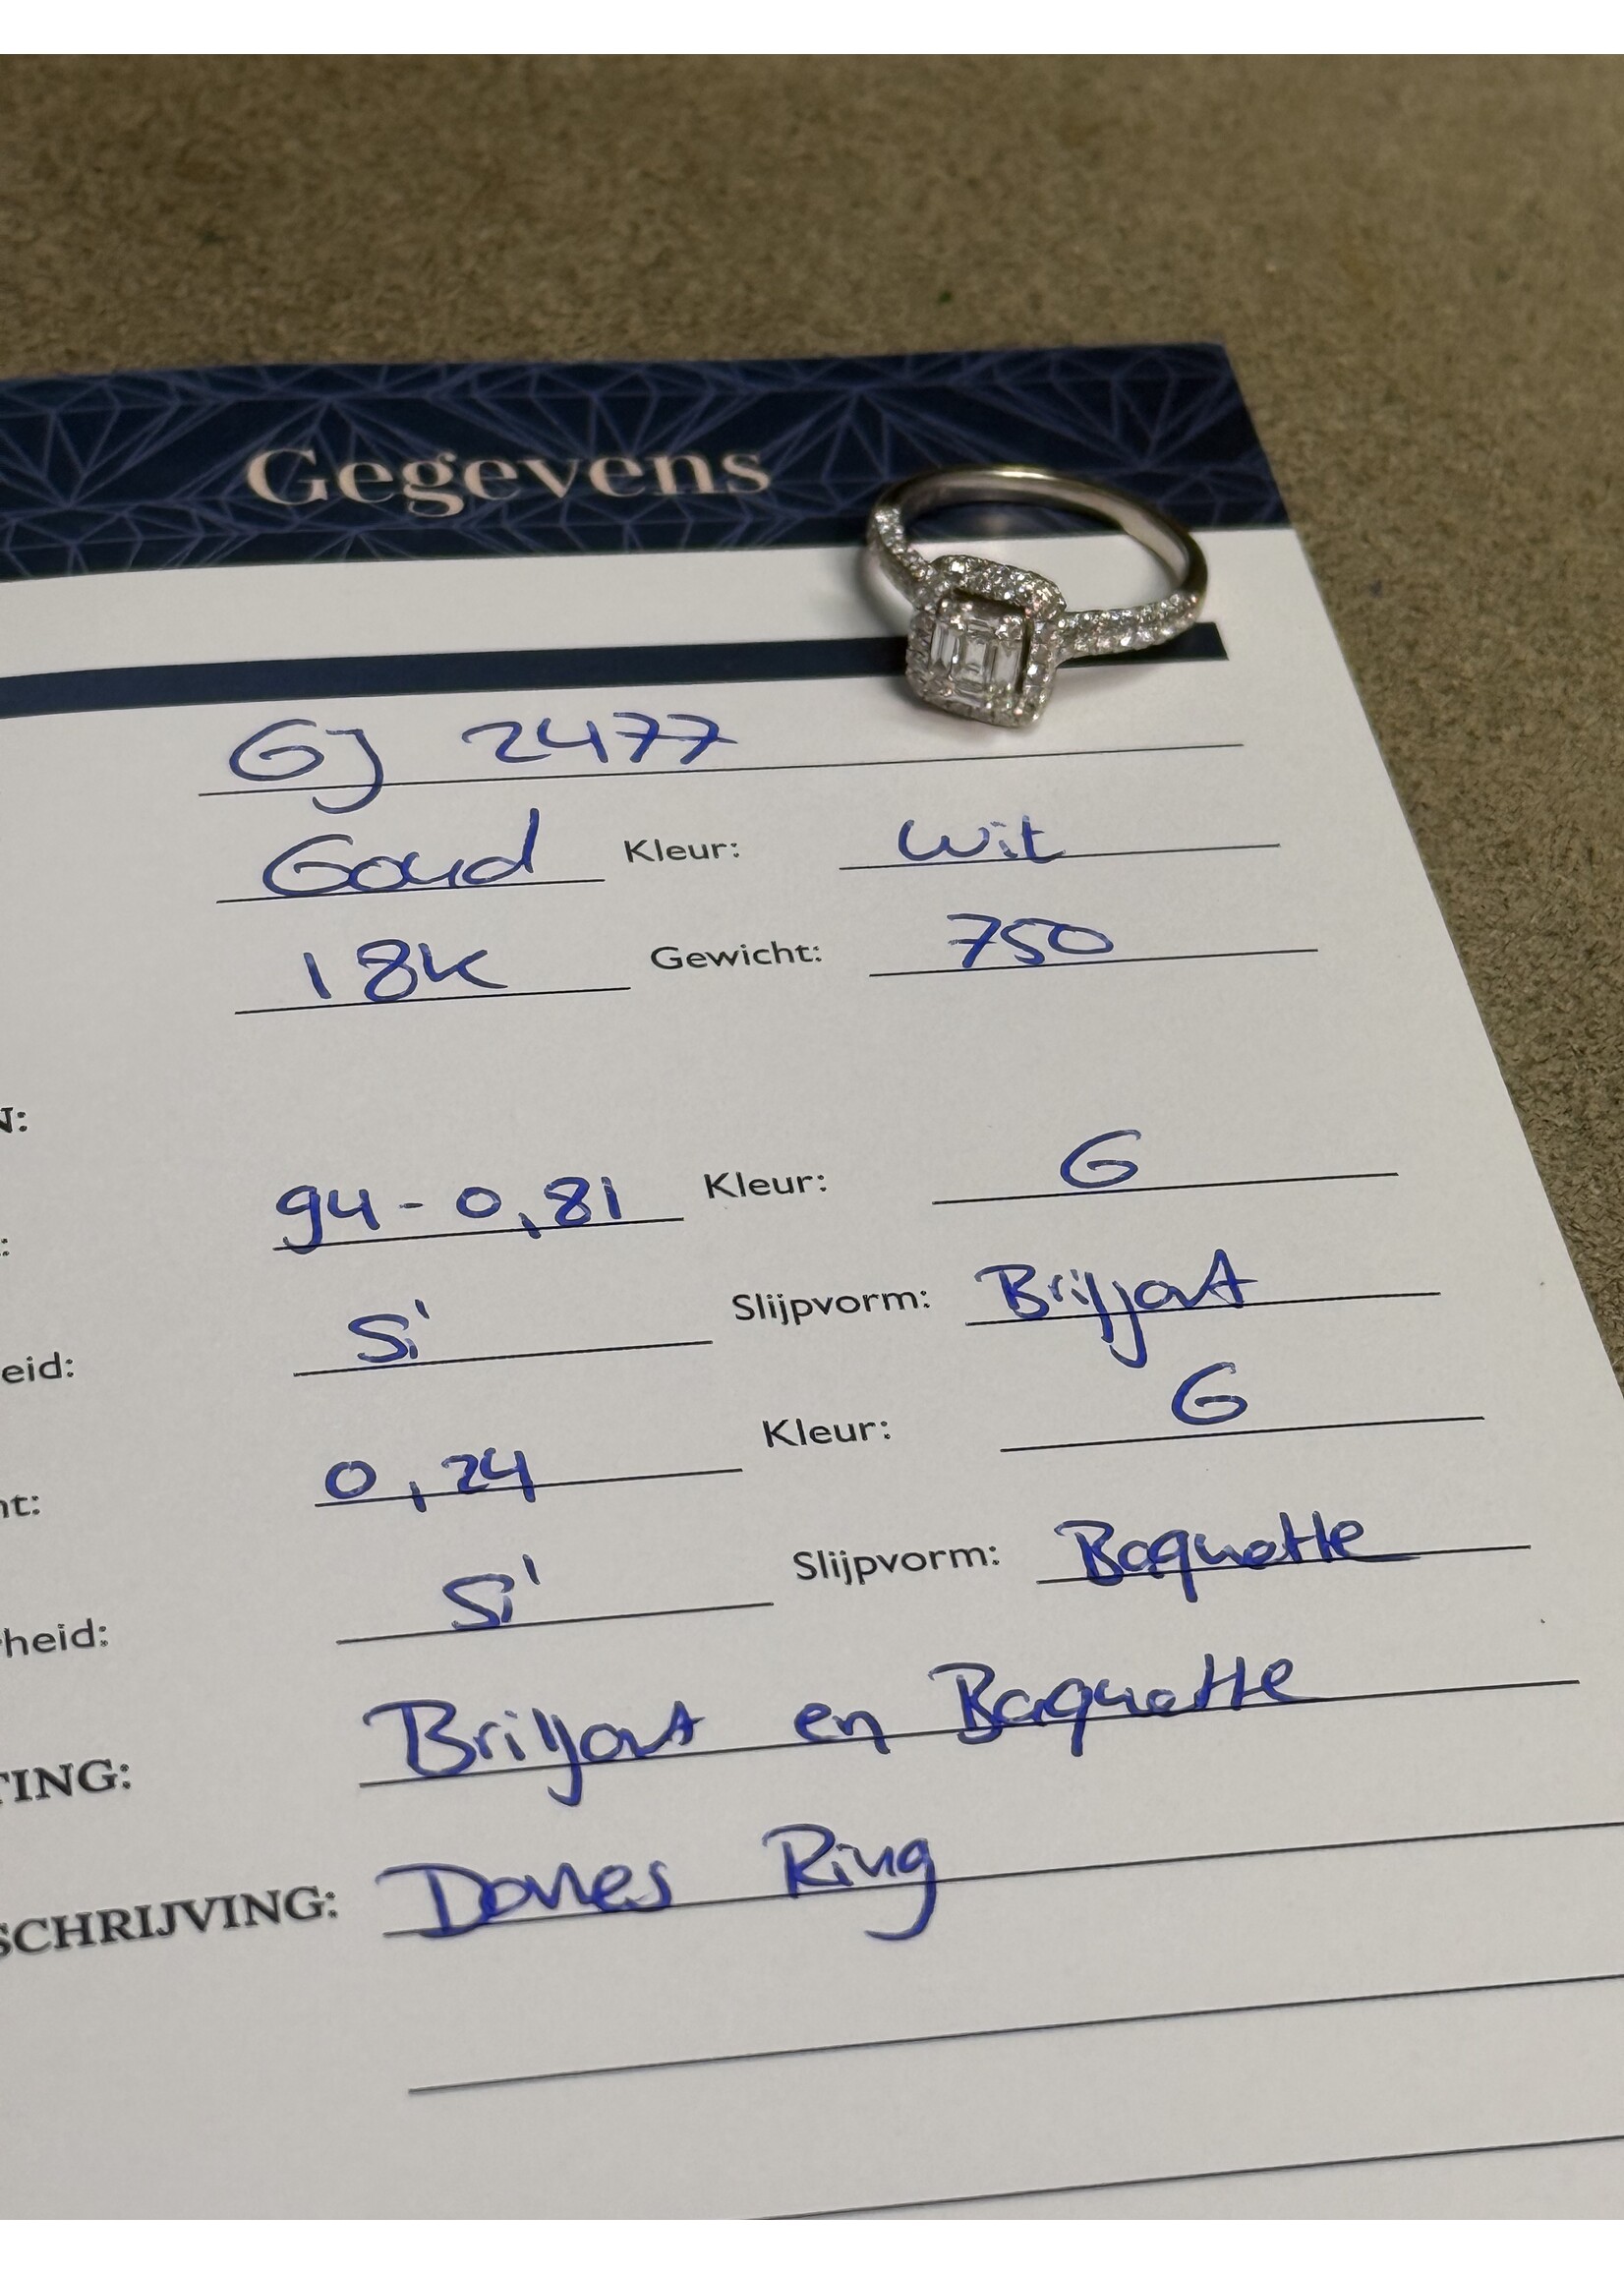 Gegevens
GJ 2477
Goud Kleur: Wit
18K Gewicht: 750
N:
: 94 - 0,81 Kleur: G
eid: Si' Slijpvorm: Briljant
nt: 0,24 Kleur: G
rheid: Si' Slijpvorm: Baquette
TING: Briljant en Baquette
SCHRIJVING: Dames Ring